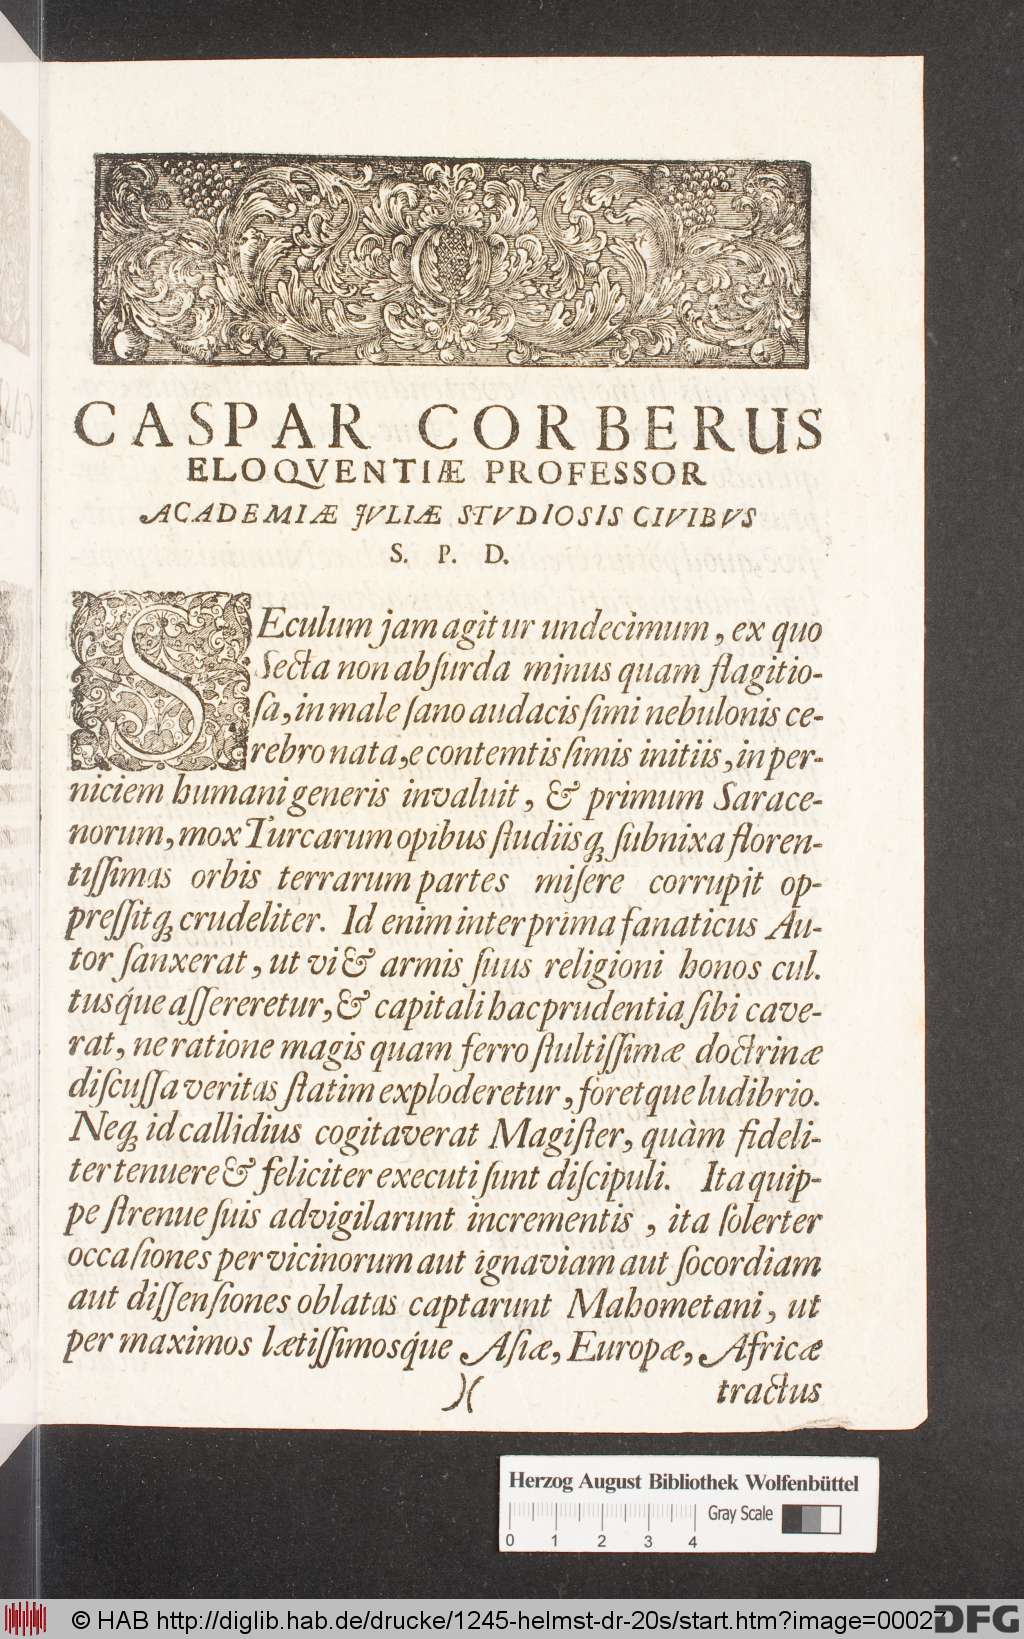 CASPAR CORBERUS
ELOQVENTIÆ PROFESSOR
ACADEMIÆ JVLIÆ STVDIOSIS CIVIBVS
S. P. D.
SEculum jam agitur undecimum, ex quo
Secta non absurda minus quam flagitio-
sa, in male sano audacissimi nebulonis ce-
rebro nata, e contemtissimis initiis, in per-
niciem humani generis invaluit, & primum Sarace-
norum, mox Turcarum opibus studiisq; subnixa floren-
tissimas orbis terrarum partes misere corrupit op-
pressitq; crudeliter. Id enim inter prima fanaticus Au-
tor sanxerat, ut vi & armis suus religioni honos cul.
tusq́ue assereretur, & capitali hac prudentia sibi cave-
rat, ne ratione magis quam ferro stultissimæ doctrinæ
discussa veritas statim exploderetur, foretque ludibrio.
Neq; id callidius cogitaverat Magister, quàm fideli-
ter tenuere & feliciter executi sunt discipuli. Ita quip-
pe strenue suis advigilarunt incrementis, ita solerter
occasiones per vicinorum aut ignaviam aut socordiam
aut dissensiones oblatas captarunt Mahometani, ut
per maximos lætissimosq́ue Asiæ, Europæ, Africæ
)( tractus
Herzog August Bibliothek Wolfenbüttel
Gray Scale
0 1 2 3 4
© HAB http://diglib.hab.de/drucke/1245-helmst-dr-20s/start.htm?image=00027
DFG